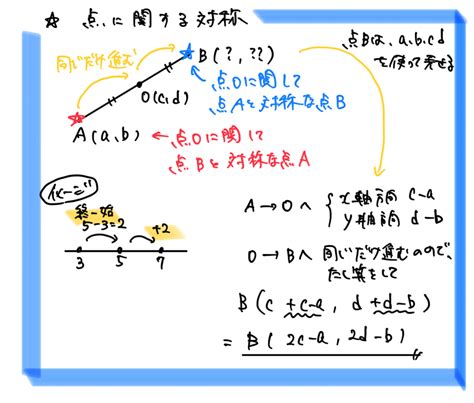 ☆ 点に関する対称
同じだけ進む
B(?, ??)
点Bは、a,b,c,d
を使って表せる
O(c,d)
点Oに関して
点Aと対称な点B
A(a,b)
点Oに関して
点Bと対称な点A
イメージ
終-始
5-3=2
+2
3 5 7
A→Oへ
x軸方向 c-a
y軸方向 d-b
O→Bへ 同じだけ進むので、
たし算をして
B(c+c-a, d+d-b)
= B(2c-a, 2d-b)